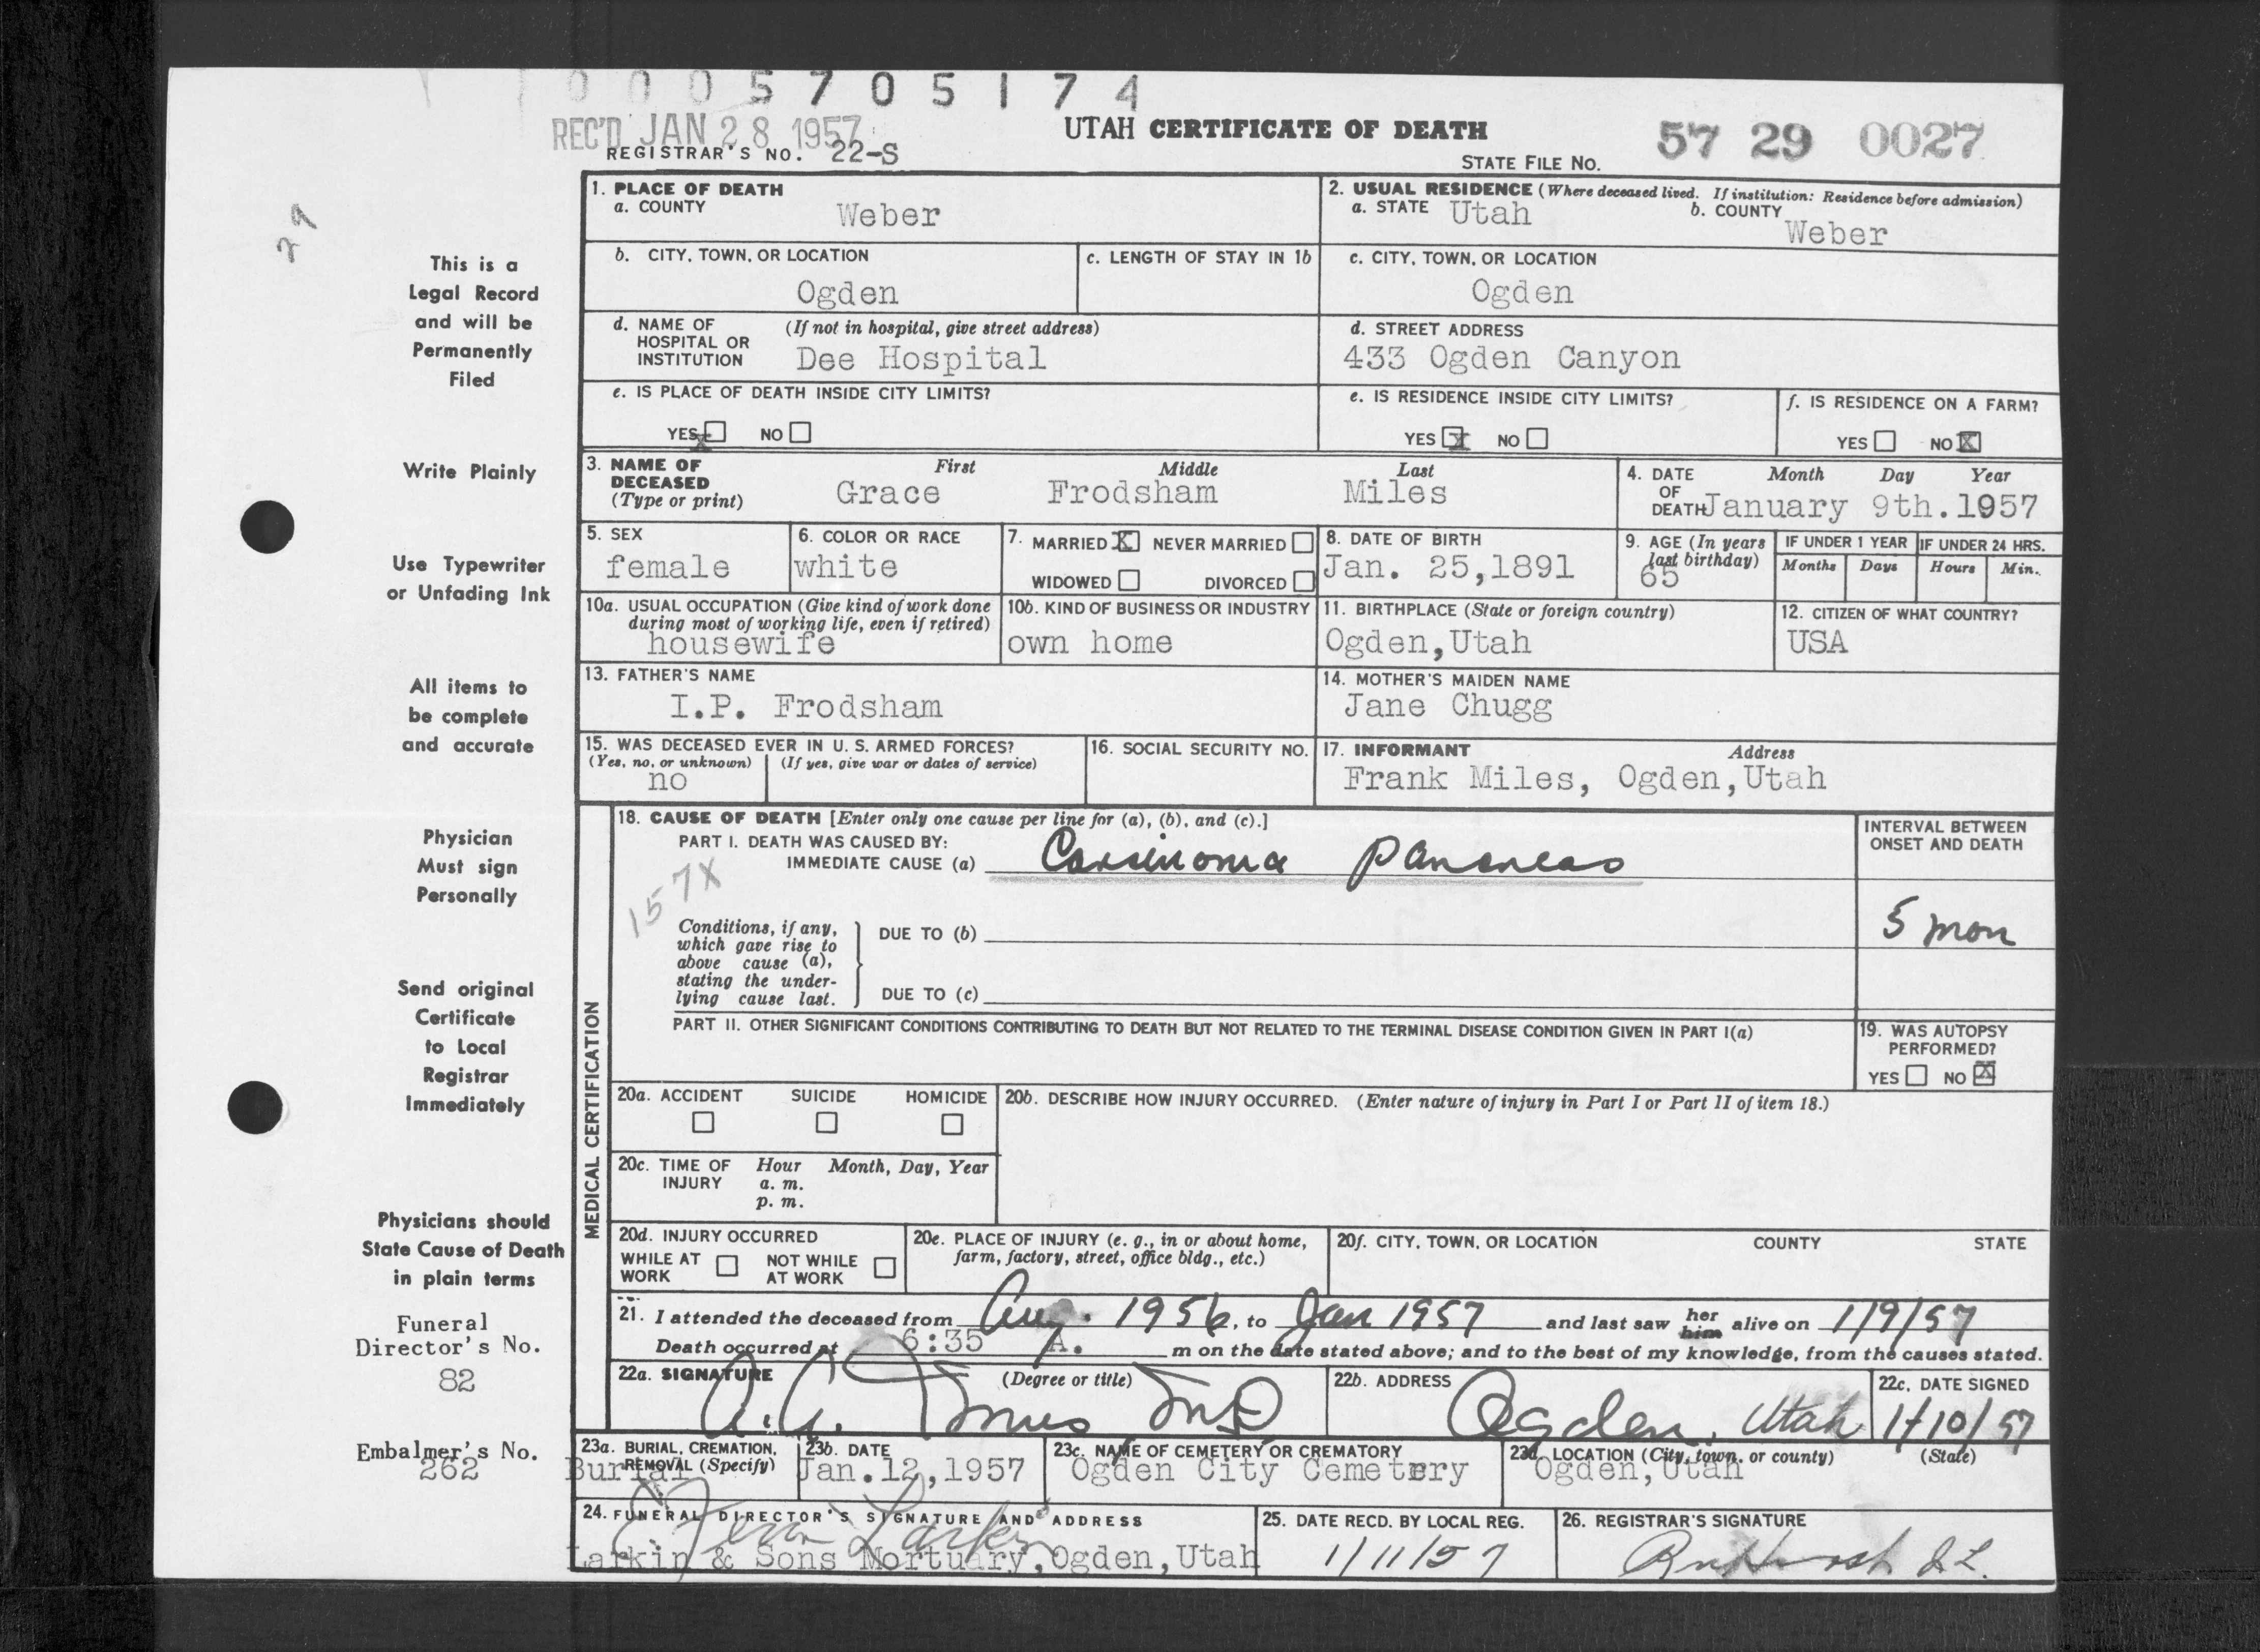 0005705174
REC'D JAN 28 1957
UTAH CERTIFICATE OF DEATH
57 29 0027
REGISTRAR'S NO. 22-S
STATE FILE NO.
27
This is a
Legal Record
and will be
Permanently
Filed
Write Plainly
Use Typewriter
or Unfading Ink
All items to
be complete
and accurate
Physician
Must sign
Personally
Send original
Certificate
to Local
Registrar
Immediately
Physicians should
State Cause of Death
in plain terms
Funeral
Director's No.
82
Embalmer's No.
262
1. PLACE OF DEATH
a. COUNTY Weber
2. USUAL RESIDENCE (Where deceased lived. If institution: Residence before admission)
a. STATE Utah b. COUNTY Weber
b. CITY, TOWN, OR LOCATION
Ogden
c. LENGTH OF STAY IN 1b
c. CITY, TOWN, OR LOCATION
Ogden
d. NAME OF HOSPITAL OR INSTITUTION (If not in hospital, give street address)
Dee Hospital
d. STREET ADDRESS
433 Ogden Canyon
e. IS PLACE OF DEATH INSIDE CITY LIMITS?
YES X NO
e. IS RESIDENCE INSIDE CITY LIMITS?
YES X NO
f. IS RESIDENCE ON A FARM?
YES NO X
3. NAME OF DECEASED (Type or print)
First Middle Last
Grace Frodsham Miles
4. DATE OF DEATH Month Day Year
January 9th. 1957
5. SEX
female
6. COLOR OR RACE
white
7. MARRIED X NEVER MARRIED
WIDOWED DIVORCED
8. DATE OF BIRTH
Jan. 25,1891
9. AGE (In years last birthday)
65
IF UNDER 1 YEAR
Months Days
IF UNDER 24 HRS.
Hours Min.
10a. USUAL OCCUPATION (Give kind of work done
during most of working life, even if retired)
housewife
10b. KIND OF BUSINESS OR INDUSTRY
own home
11. BIRTHPLACE (State or foreign country)
Ogden,Utah
12. CITIZEN OF WHAT COUNTRY?
USA
13. FATHER'S NAME
I.P. Frodsham
14. MOTHER'S MAIDEN NAME
Jane Chugg
15. WAS DECEASED EVER IN U. S. ARMED FORCES?
(Yes, no, or unknown) (If yes, give war or dates of service)
no
16. SOCIAL SECURITY NO.
17. INFORMANT Address
Frank Miles, Ogden,Utah
MEDICAL CERTIFICATION
18. CAUSE OF DEATH [Enter only one cause per line for (a), (b), and (c).]
PART I. DEATH WAS CAUSED BY:
IMMEDIATE CAUSE (a) Carsinoma Pancreas
157X
INTERVAL BETWEEN
ONSET AND DEATH
5 mon
Conditions, if any,
which gave rise to
above cause (a),
stating the under-
lying cause last.
DUE TO (b)
DUE TO (c)
PART II. OTHER SIGNIFICANT CONDITIONS CONTRIBUTING TO DEATH BUT NOT RELATED TO THE TERMINAL DISEASE CONDITION GIVEN IN PART I(a)
19. WAS AUTOPSY
PERFORMED?
YES NO X
20a. ACCIDENT SUICIDE HOMICIDE
20b. DESCRIBE HOW INJURY OCCURRED. (Enter nature of injury in Part I or Part II of item 18.)
20c. TIME OF INJURY Hour Month, Day, Year
a. m.
p. m.
20d. INJURY OCCURRED
WHILE AT WORK NOT WHILE AT WORK
20e. PLACE OF INJURY (e. g., in or about home,
farm, factory, street, office bldg., etc.)
20f. CITY, TOWN, OR LOCATION COUNTY STATE
21. I attended the deceased from Aug. 1956, to Jan 1957 and last saw her him alive on 1/9/57
Death occurred at 6:35 A. m on the date stated above; and to the best of my knowledge, from the causes stated.
22a. SIGNATURE (Degree or title)
MD
22b. ADDRESS
Ogden, Utah
22c. DATE SIGNED
1/10/57
23a. BURIAL, CREMATION,
REMOVAL (Specify)
Burial
23b. DATE
Jan.12,1957
23c. NAME OF CEMETERY OR CREMATORY
Ogden City Cemetery
23d. LOCATION (City, town, or county) (State)
Ogden,Utah
24. FUNERAL DIRECTOR'S SIGNATURE AND ADDRESS
Larkin
Larkin & Sons Mortuary,Ogden,Utah
25. DATE RECD. BY LOCAL REG.
1/11/57
26. REGISTRAR'S SIGNATURE